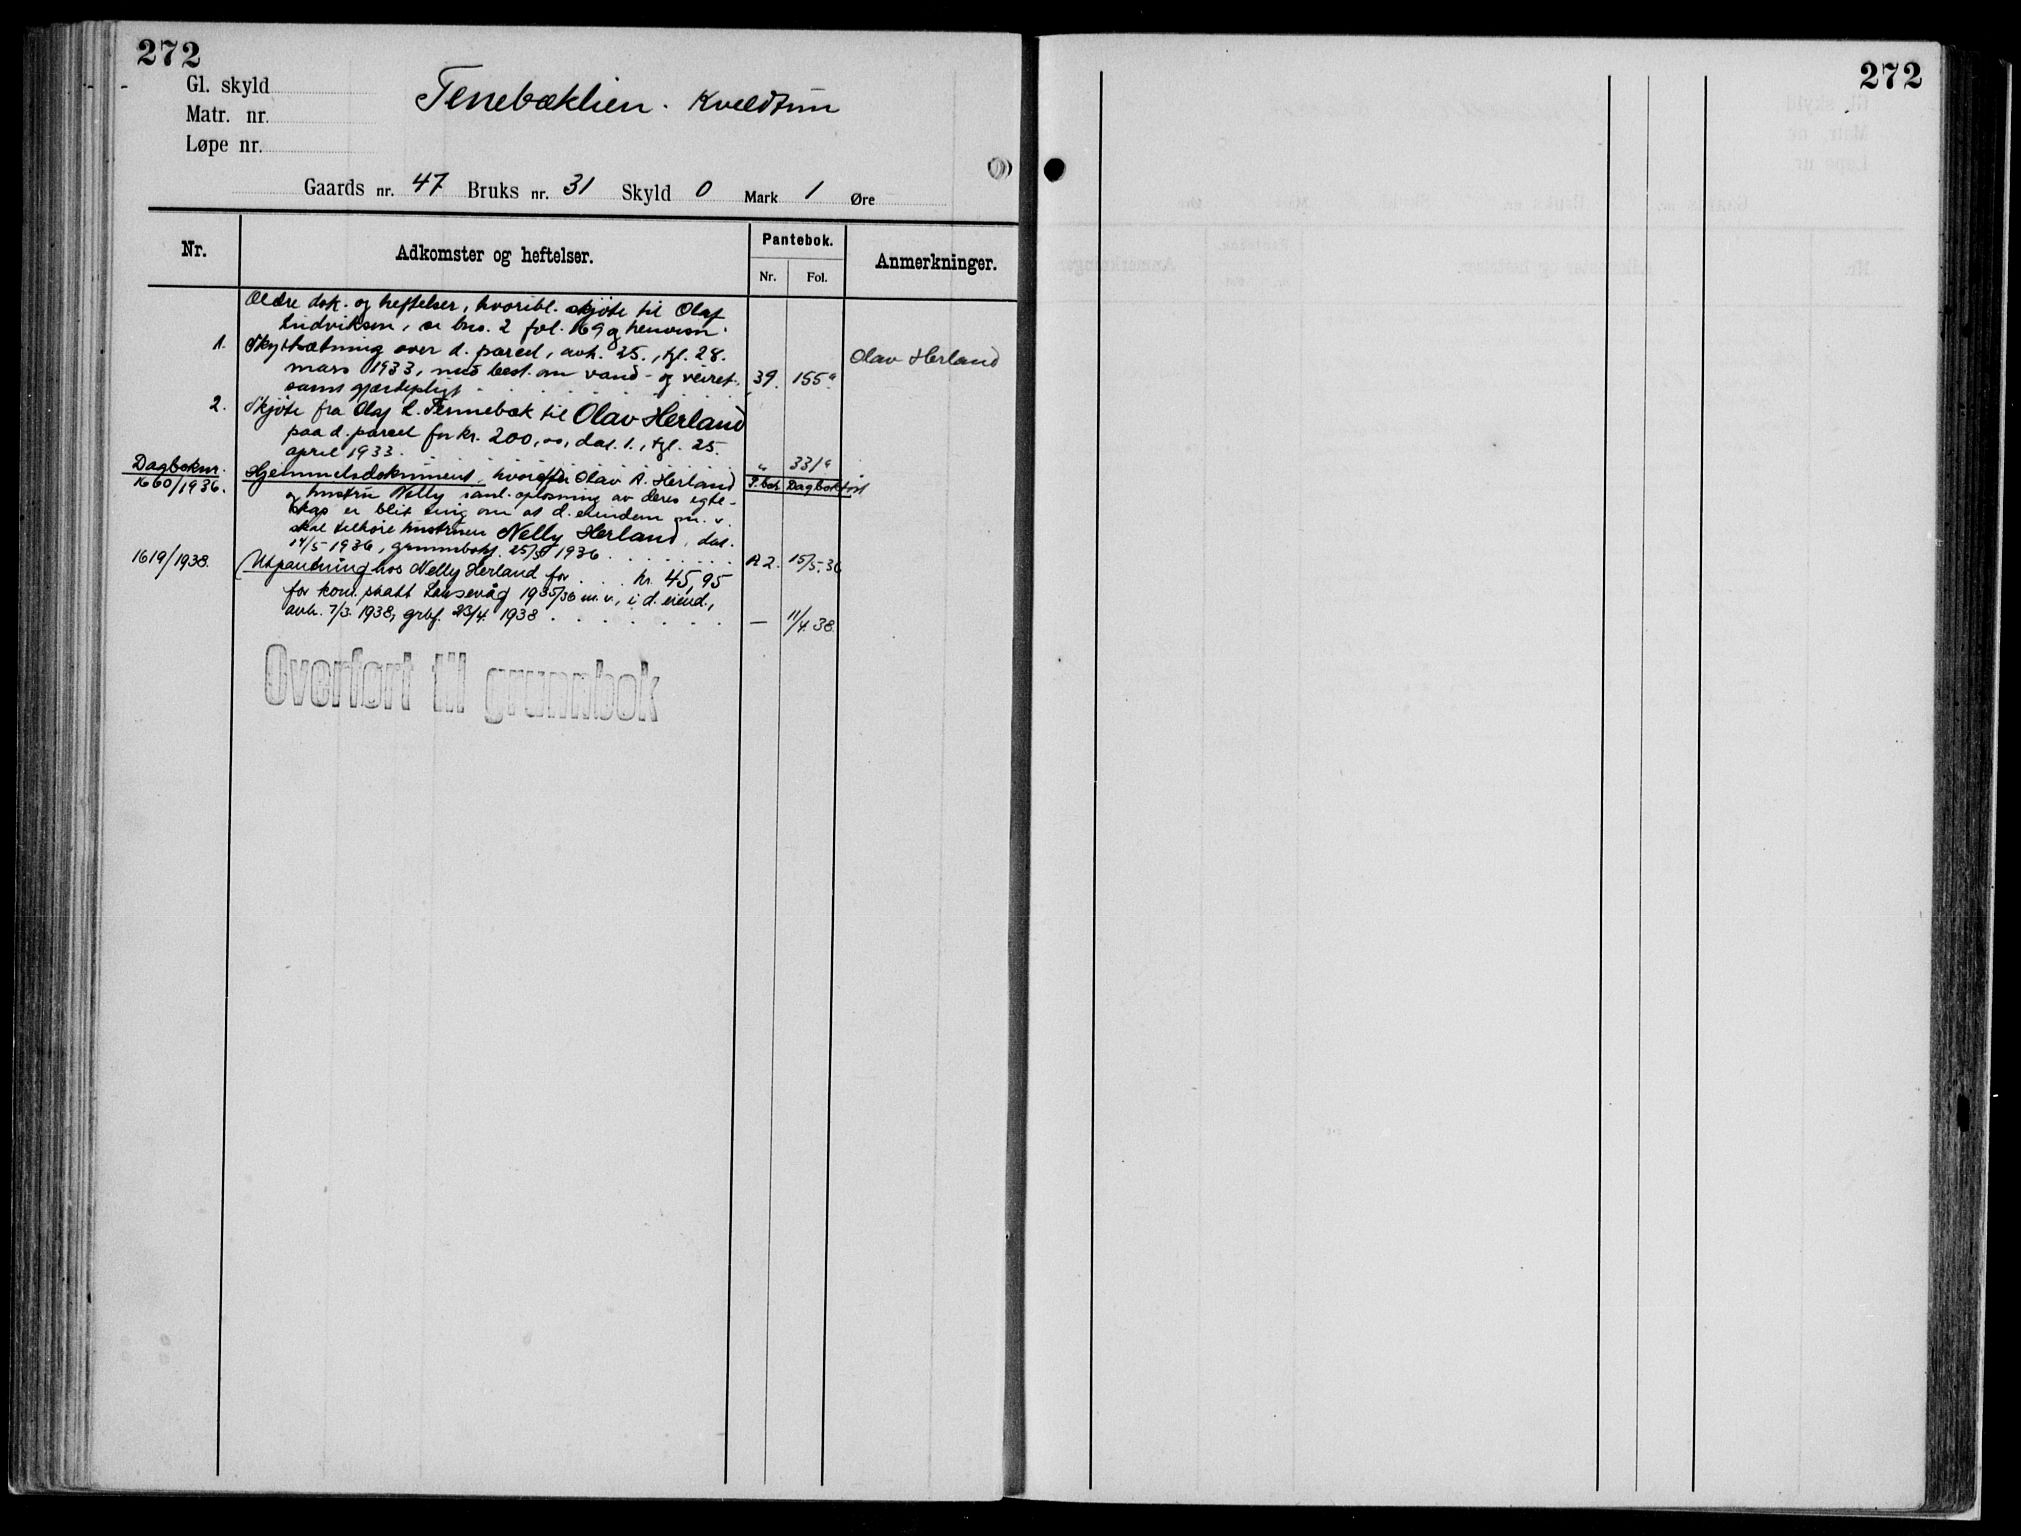 272
Gl. skyld
Matr. nr.
Løpe nr.
Tenebæklien. Kveldtun
Gaards nr. 47 Bruks nr. 31 Skyld 0 Mark 1 Øre
Nr. Adkomster og heftelser. Pantebok. Anmerkninger.
Nr. Fol.
Ældre dok. og heftelser, hvoribl. skjøte til Olaf
Ludviksen, se bno. 2 fol. 169 og henvisn.
1. Skyldsætning over d. parcel, avh. 25., tgl. 28.
Olav Herland
mars 1933, med best. om vand- og veiret
samt gjærdepligt . . . 39. 155a
2. Skjøte fra Olaf L. Tennebæk til Olav Herland
paa d. parcel for kr. 200,00, dat. 1., tgl. 25.
april 1933. . . . " 331a
Dagboknr. Hjemmelsdokument, hvorefter Olav A. Herland P.bok Dagbokført
1660/1936. og hustru Nelly ianl. opløsning av deres egte-
skap er blit enig om at d. eiendom m. v.
skal tilhøre hustruen Nelly Herland, dat.
14/5 1936, grunnbokf. 25/5 1936 . . . A2. 15/5.36
1619/1938. Utpantning hos Nelly Herland for . . . kr. 45,95
for kom. skatt Laksevåg 1935/36 m.v., i d. eiend.,
avh. 7/3 1938, grbf. 23/4 1938 . . . — 11/4 38.
Overført til grunnbok
272